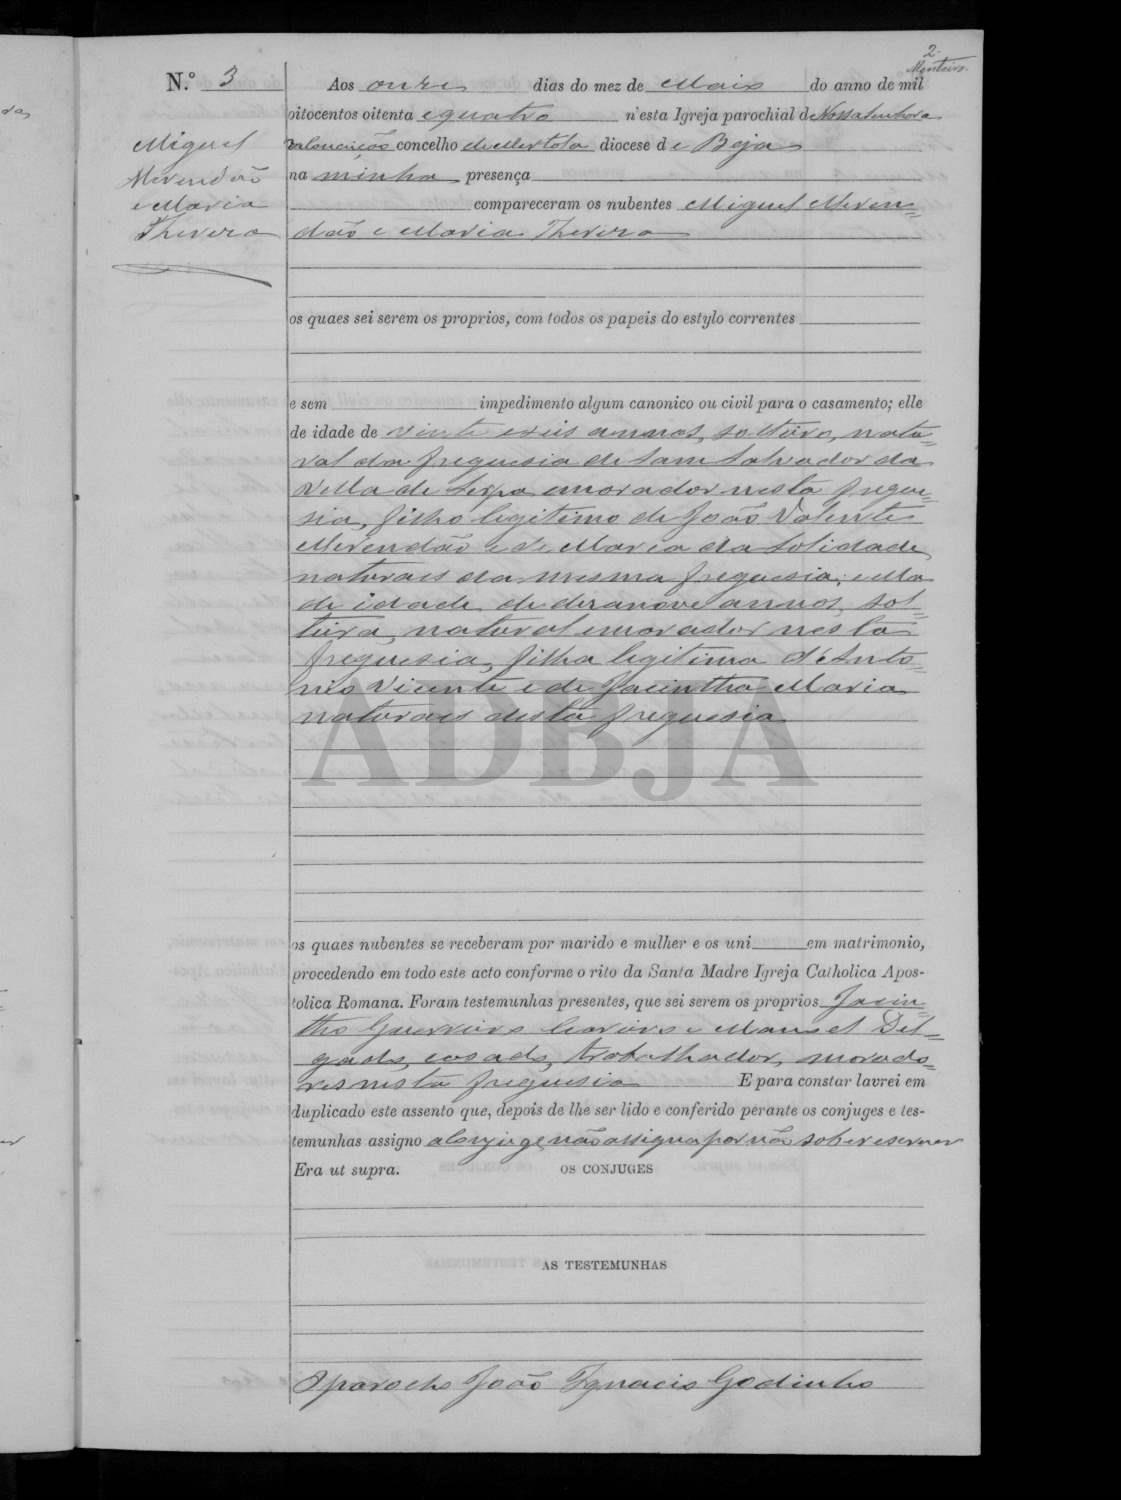 2
Monteiro
N.º 3
Miguel
Merendão
e Maria
Thereza
Aos onze dias do mez de Maio do anno de mil
oitocentos oitenta e quatro n'esta Igreja parochial de Nossa Senhora
concelho de Mertola diocese de Beja
na minha presença
compareceram os nubentes Miguel Meren=
dão e Maria Thereza
os quaes sei serem os proprios, com todos os papeis do estylo correntes
e sem impedimento algum canonico ou civil para o casamento; elle
de idade de vinte e seis annos, solteiro, natu=
ral da freguesia de Sam Salvador da
Villa de Serpa e morador nesta fregue=
sia, filho legitimo de João Valente
Merendão e de Maria da Solidade
naturais da mesma freguesia; e ella
de idade de dezanove annos, sol=
teira, natural e morador nesta
freguesia, filha legitima d'Anto=
nio Vicente e de Jacintha Maria
naturais desta freguesia
os quaes nubentes se receberam por marido e mulher e os uni em matrimonio,
procedendo em todo este acto conforme o rito da Santa Madre Igreja Catholica Apos-
tolica Romana. Foram testemunhas presentes, que sei serem os proprios Jacin=
tho Guerreiro e Manoel Del=
gado, casado, trabalhador, morado
res nesta freguesia E para constar lavrei em
duplicado este assento que, depois de lhe ser lido e conferido perante os conjuges e tes-
temunhas assigno a Conjuge não assigna por não saber escrever
Era ut supra. OS CONJUGES
AS TESTEMUNHAS
O parocho João Ignacio Godinho
ADBJA